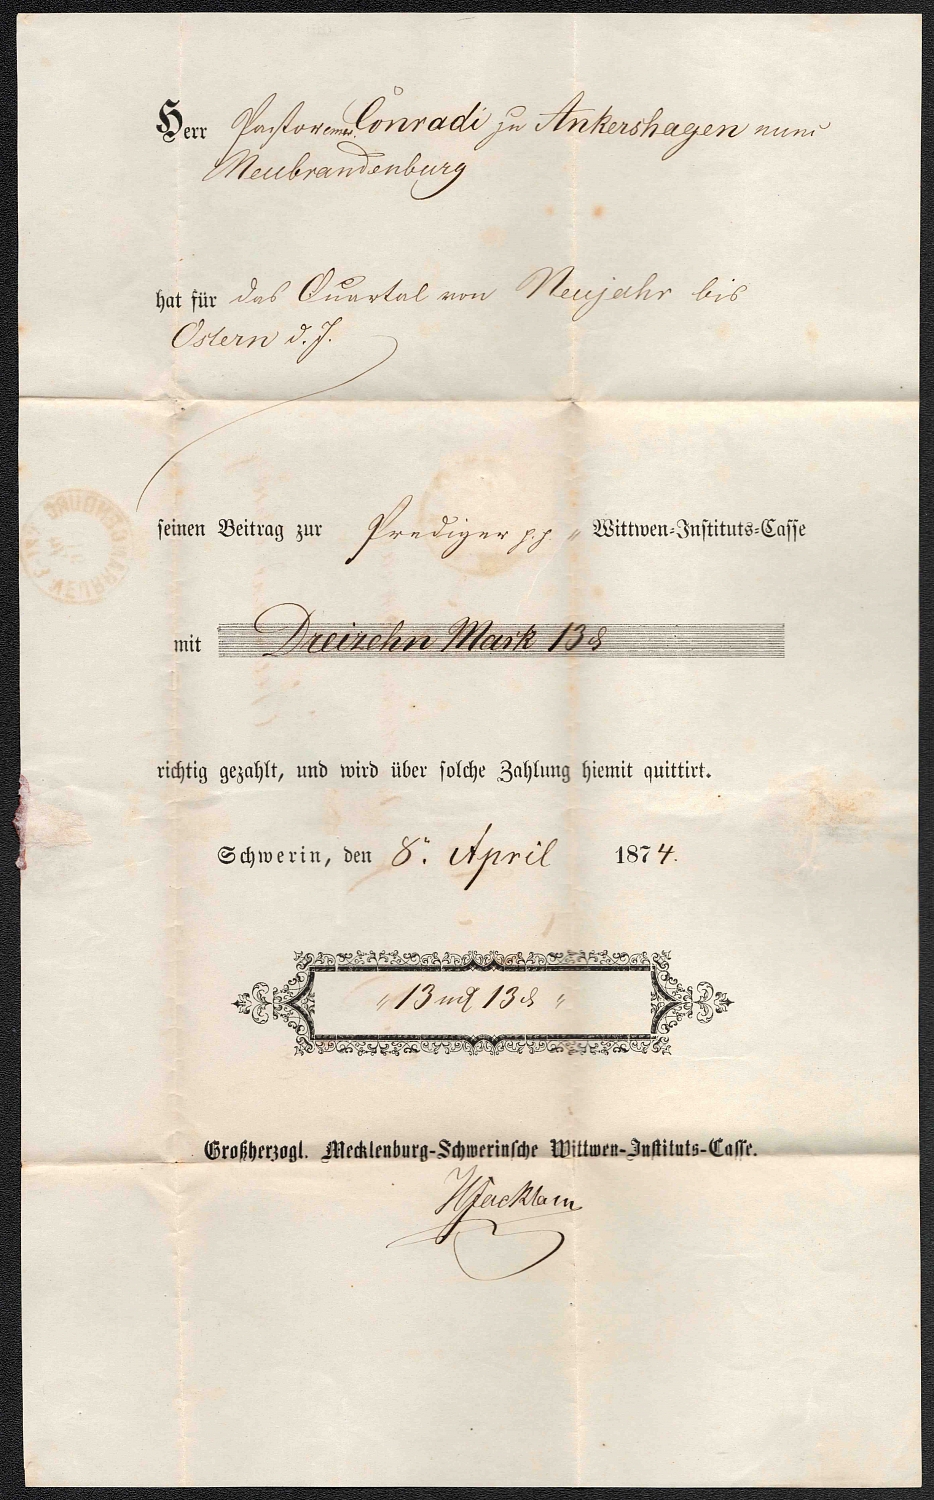 Herr Pastor emer. Conradi zu Ankershagen nunc
Neubrandenburg
hat für das Quartal von Neujahr bis
Ostern d. J.
seinen Beitrag zur Prediger pp „ Wittwen-Instituts-Casse
mit Dreizehn Mark 13 ß
richtig gezahlt, und wird über solche Zahlung hiemit quittirt.
Schwerin, den 8. April 1874.
„ 13 mk 13 ß „
Großherzogl. Mecklenburg-Schwerinsche Wittwen-Instituts-Casse.